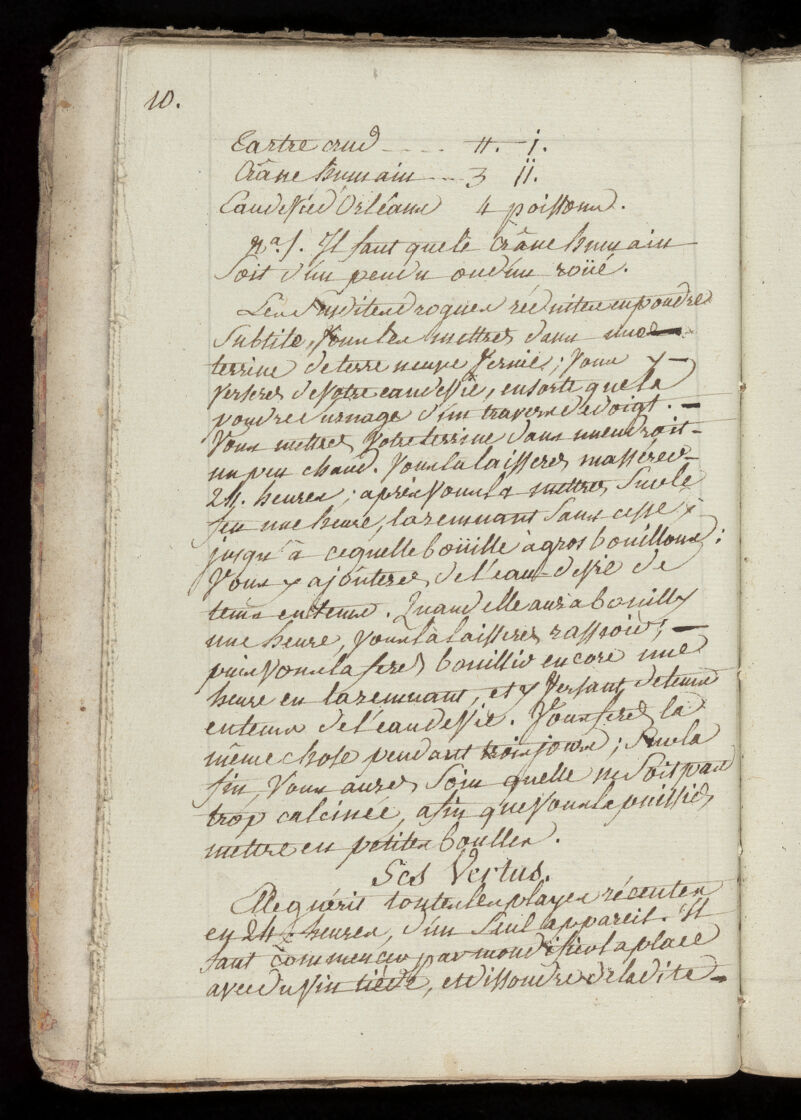 10.
Tartre crud ..... ℔. j.
Crâne humain ... ʒ ij.
Eau de Vie d'Orléans 4 poissons.
Nª. 1. Il faut que le Crâne humain
soit d'un pendu ou d'un roüé.
Les Susdites drogues réduites en poudre
Subtile, Vous les mettrez dans une
terrine de terre neuve Vernié; Vous y
Verserez de Votre eau de Vie, en sorte que la
poudre surnage d'un travers de doigt.
Vous mettrez Votre terrine dans un endroit
un peu chaud. Vous la laisserez massérer
24. heures; après Vous la mettrez Sur le
feu une heure, la remuant Sans cesse,
jusqu'à ce quelle boüille à gros boüillons:
Vous y ajoûterez de l'eau-de Vie de
tems en tems. Quand elle aura bouilly
une heure, Vous la laisserez rassoir;
puis Vous la ferez bouillir encore une
heure en la remuant, et y Versant de tems
en tems de l'eau de Vie. Vous ferez la
même chose pendant trois jours; Sur la
fin, Vous aurez Soin quelle ne Soit pas
trop calcinée, afin que Vous la puissiez
mettre en petites boulles.
Ses Vertus.
Elle guérit toutes les playes récentes
en 24. heures, d'un Seul appareil. Il
faut commencer par mondifier la place
avec du Vin tiède, et dissoudre de la dite